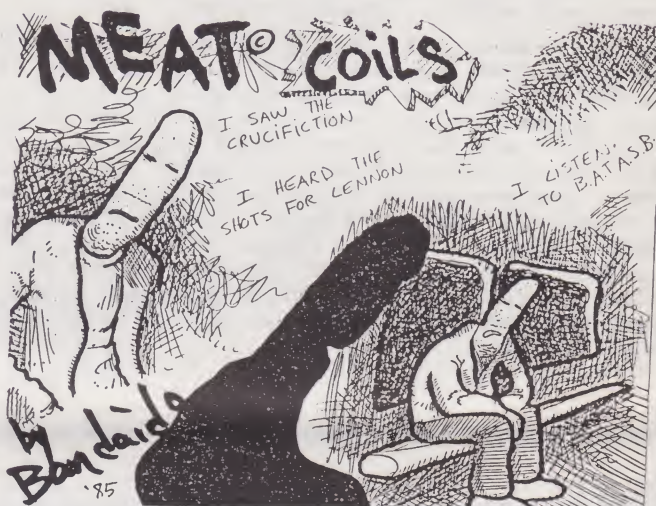 MEAT© COILS
I SAW THE
CRUCIFICTION
I HEARD THE
SHOTS FOR LENNON
I LISTEN.
TO B.A.T.A.S.B.
by
Bandaid
'85